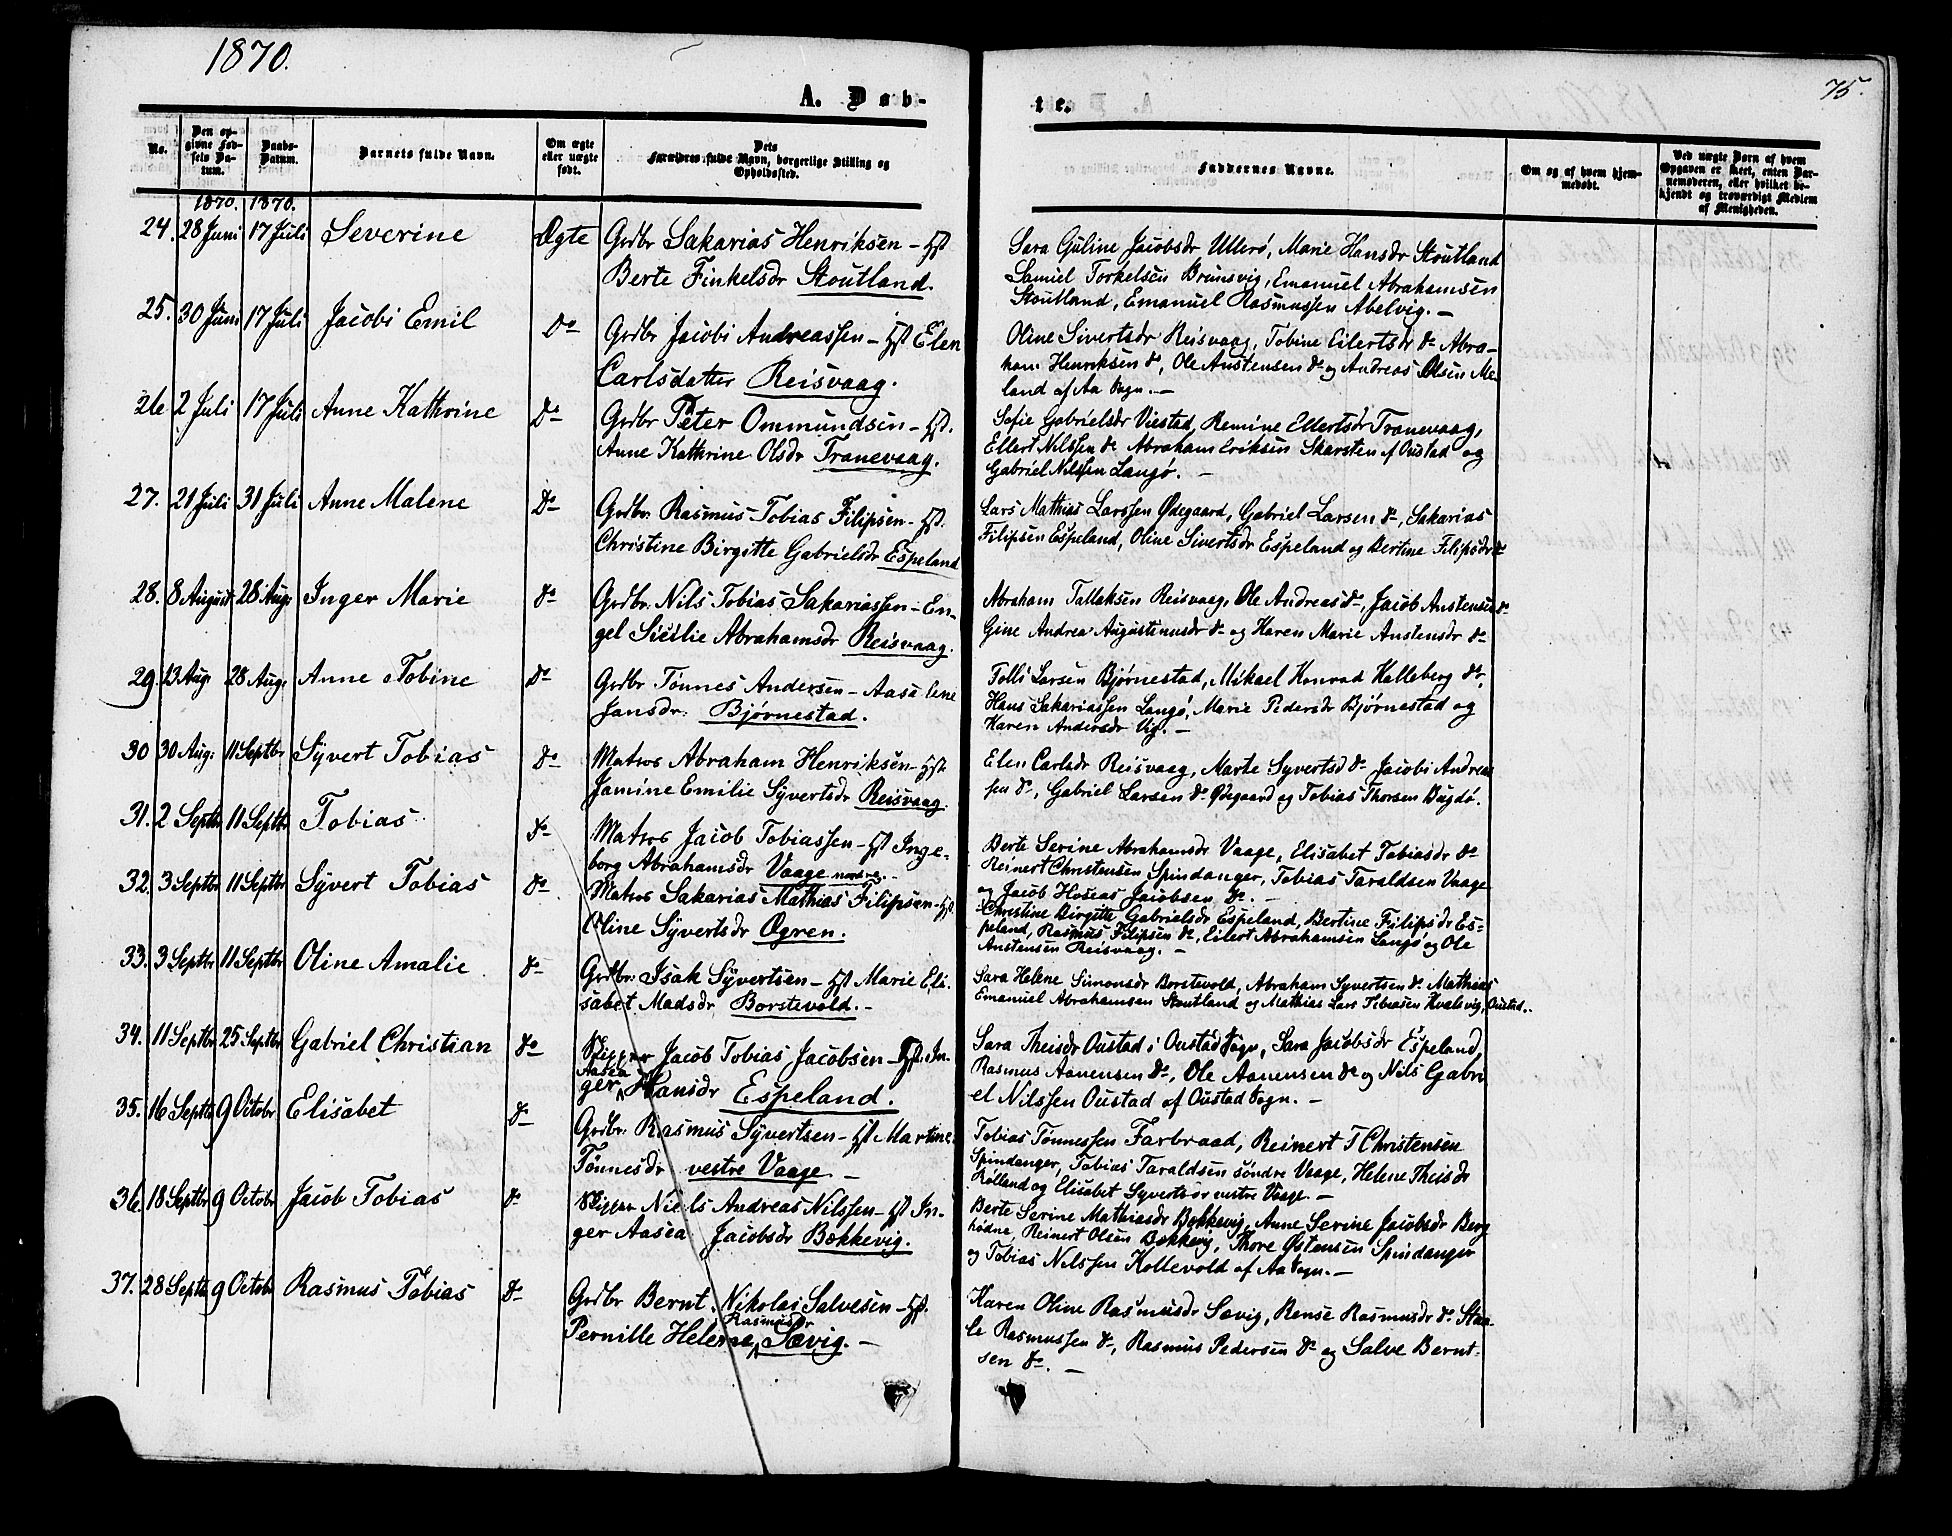 1870.
75.
A. Døb-
te.
No.
Den opgivne Fødsels Datum.
Daabs-Datum.
Barnets fulde Navn.
Om ægte eller uægte født.
Dets Forældres fulde Navn, borgerlige Stilling og Opholdssted.
Faddernes Navne.
Om og af hvem hjemmedøbt.
Ved uægte Børn af hvem Opgaven er skeet, enten Barnemoderen, eller hvilket bekjendt og troværdigt Medlem af Menigheden.
1870. 1870.
24. 28 Juni 17 Juli Severine Ægte Grdbr Sakarias Henriksen – Hst
Berte Finkelsdr Stoutland.
Sara Guline Jacobsdr Ullerø, Marie Hansdr Stoutland
Samuel Torkelsen Brunsvig, Emanuel Abrahamsen
Stoutland, Emanuel Rasmussen Abelvig. –
25. 30 Juni 17 Juli Jacobi Emil Do Grdbr Jacobi Andreassen – Hst Elen
Carlsdatter Reisvaag.
Oline Sivertsdr Reisvaag, Tobine Eilertsdr do Abra-
ham Henriksen do, Ole Austensen do og Andreas Olsen Me-
land af Aa Sogn. –
26 2 Juli 17 Juli Anne Kathrine Do Grdbr Peter Ommundsen – Hst.
Anne Kathrine Olsdr Tranevaag.
Sofie Gabrielsdr Viestad, Remine Ellertsdr Tranevaag,
Ellert Nilssen do Abraham Eriksen Skarsten af Oustad og
Gabriel Nilssen Langø. –
27. 21 Juli 31 Juli Anne Malene Do Grdbr. Rasmus Tobias Filipsen – Hst.
Christine Birgitte Gabrielsdr Espeland
Lars Mathias Larssen Ødegaard, Gabriel Larsen do, Sakarias
Filipsen Espeland, Oline Sivertsdr Espeland og Bertine Filipsdr do
28. 8 August 28 Aug. Inger Marie do Grdbr. Nils Tobias Sakariassen – En-
gel Sicilie Abrahamsdr Reisvaag.
Abraham Tallaksen Reisvaag, Ole Andreas do, Jacob Austensen do
Gine Andrea Augustinusdr do og Karen Marie Austensdr do
29. 13 Aug. 28 Aug. Anne Tobine Do Grdbr Tønnes Andersen – Aasa Lene
Jansdr. Bjørnestad.
Tolli Larsen Bjørnestad, Mikael Konrad Kalleberg do,
Hans Sakariassen Langø, Marie Pedersdr Bjørnestad og
Karen Andersdr Vig. –
30 30 Aug. 11 Septbr Syvert Tobias Do Matros Abraham Henriksen – Hst
Janine Emilie Syvertsdr Reisvaag.
Elen Carlsdr Reisvaag, Marte Syvertsd do Jacobi Andreas
sen do, Gabriel Larsen do Ødegaard og Tobias Thorsen Bugdø.
31. 2 Septbr 11 Septbr Tobias Do Matros Jacob Tobiassen – Hst Inge-
borg Abrahamsdr Vaage nordre. –
Berte Serine Abrahamsdr Vaage, Elisabet Tobiasdr do
Reinert Christensen Spindanger, Tobias Taraldsen Vaage
og Jacob Hoseas Jacobsen do. –
32. 3 Septbr 11 Septbr Syvert Tobias Do Matros Sakarias Mathias Filipsen – Hst
Oline Syvertsdr Øgren.
Christine Birgitte Gabrielsdr Espeland, Bertine Filipsdr Es-
peland, Rasmus Filipsen do, Eilert Abrahamsen Langø og Ole
Anstensen Reisvaag. –
33. 3 Septbr 11 Septbr Oline Amalie Do Grdbr. Isak Syvertsen – Hst Marie Eli-
sabet Madsdr Borstevold. –
Sara Helene Simonsdr Borstevold, Abraham Syvertsen do Mathias
Emaniel Abrahamsen Stoutland og Mathias Lars Tobiasen Kvalsvig, Oustad..
34. 11 Septbr 25 Septbr Gabriel Christian Do Skipper Jacob Tobias Jacobsen – Hst. In-
ger Aasea Hansdr Espeland.
Sara Theisdr Oustad i Oustad Sogn, Sara Jacobsdr Espeland,
Rasmus Aanensen do, Ole Aanensen do og Nils Gabri
el Nilssen Oustad af Oustad Sogn. –
35. 16 Septbr 9 Octobr Elisabet Do Grdbr. Rasmus Syvertsen – Hst Martine
Tønnesdr vestre Vaage –
Tobias Tønnessen Farbraad, Reinert T Christensen
Spindanger, Tobias Taraldsen søndre Vaage, Helene Theisdr
Rølland og Elisabet Syvertsdr vestre Vaage. –
36. 18 Septbr 9 Octobr Jacob Tobias do Skipper Niels Andreas Nilssen – Hst In-
ger Aasea Jacobsdr Bokkevig.
Berte Serine Mathiasdr Bokkevig, Anne Serine Jacobsdr Berg
hodne, Reinert Olsen Bokkevig, Thore Østensen Spindanger
og Tobias Nilssen Kollevold af Aa Sogn. –
37. 28 Septbr 9 Octobr Rasmus Tobias Do Grdbr Bernt Nikolai Salvesen – Hst.
Pernille Helene Rasmusdr Sævig. –
Karen Oline Rasmusdr Sævig, Rense Rasmusdr do Staa-
le Rasmussen do, Rasmus Pedersen do og Salve Bernt-
sen do. –